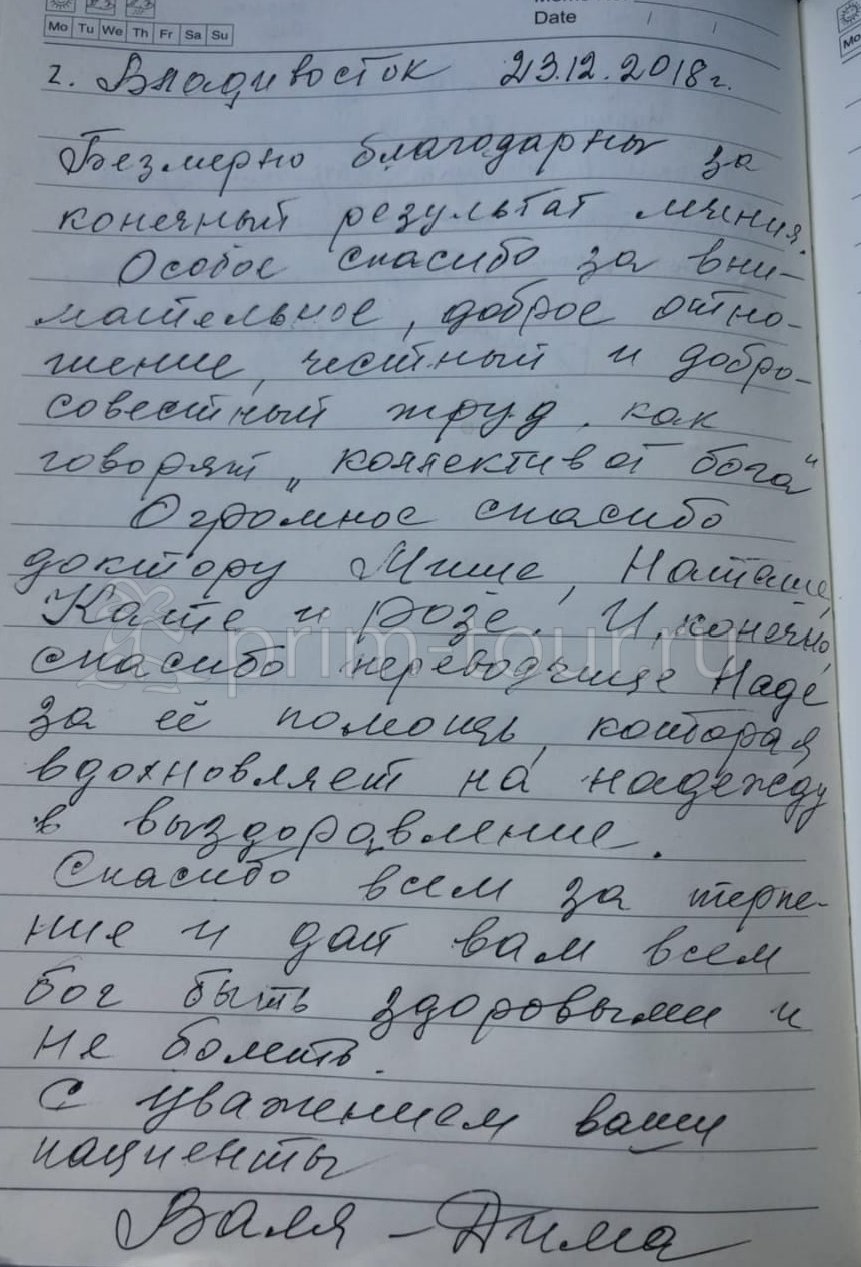 Date / /
Mo Tu We Th Fr Sa Su
г. Владивосток 23.12.2018г.
Безмерно благодарны за
конечный результат лечения.
Особое спасибо за вни-
мательное, доброе отно-
шение, честный и добро-
совестный труд, как
говорят „коллектив от бога“
Огромное спасибо
доктору Мише, Наташе,
Кате и розе. И, конечно,
спасибо переводчице Наде
за её помощь, которая
вдохновляет на надежду
в выздоравление.
Спасибо всем за терпе-
ние и дай вам всем
бог быть здоровыми и
не болеть.
С уважением ваши
пациенты
Валя – Дима
prim-tour.ru
Mo